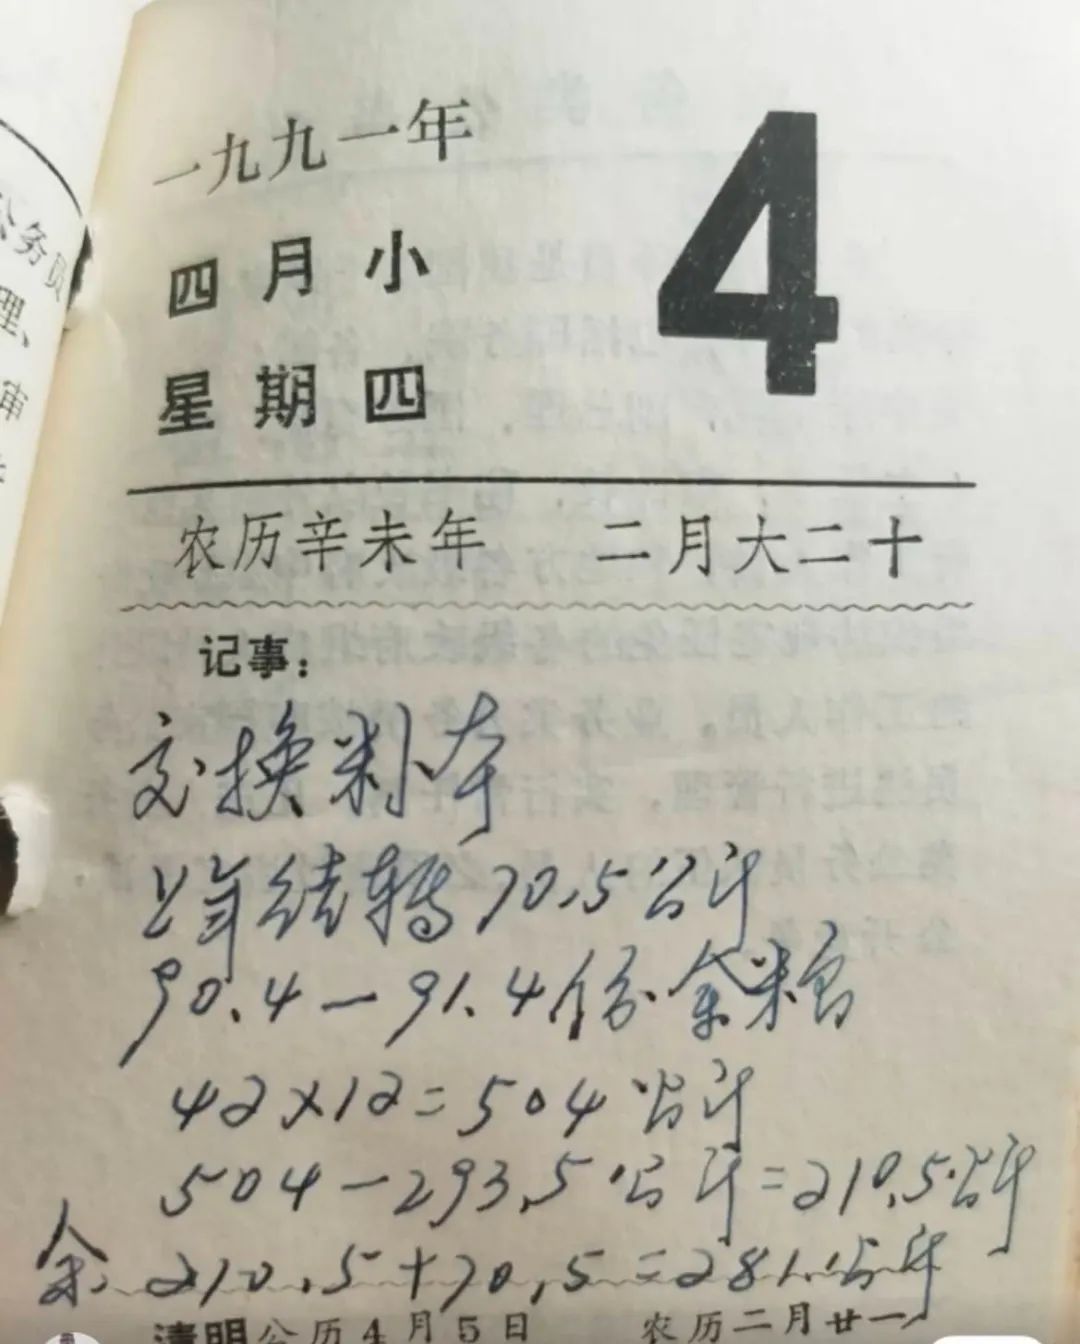 一九九一年
4
四月小
星期四
农历辛未年 二月大二十
记事:
交换粮本
上年结转70.5公斤
90.4-91.4份余粮
42×12=504公斤
504-293.5公斤=210.5公斤
余 210.5+70.5=281公斤
清明公历4月5日 农历二月廿一
公务员
理、
审